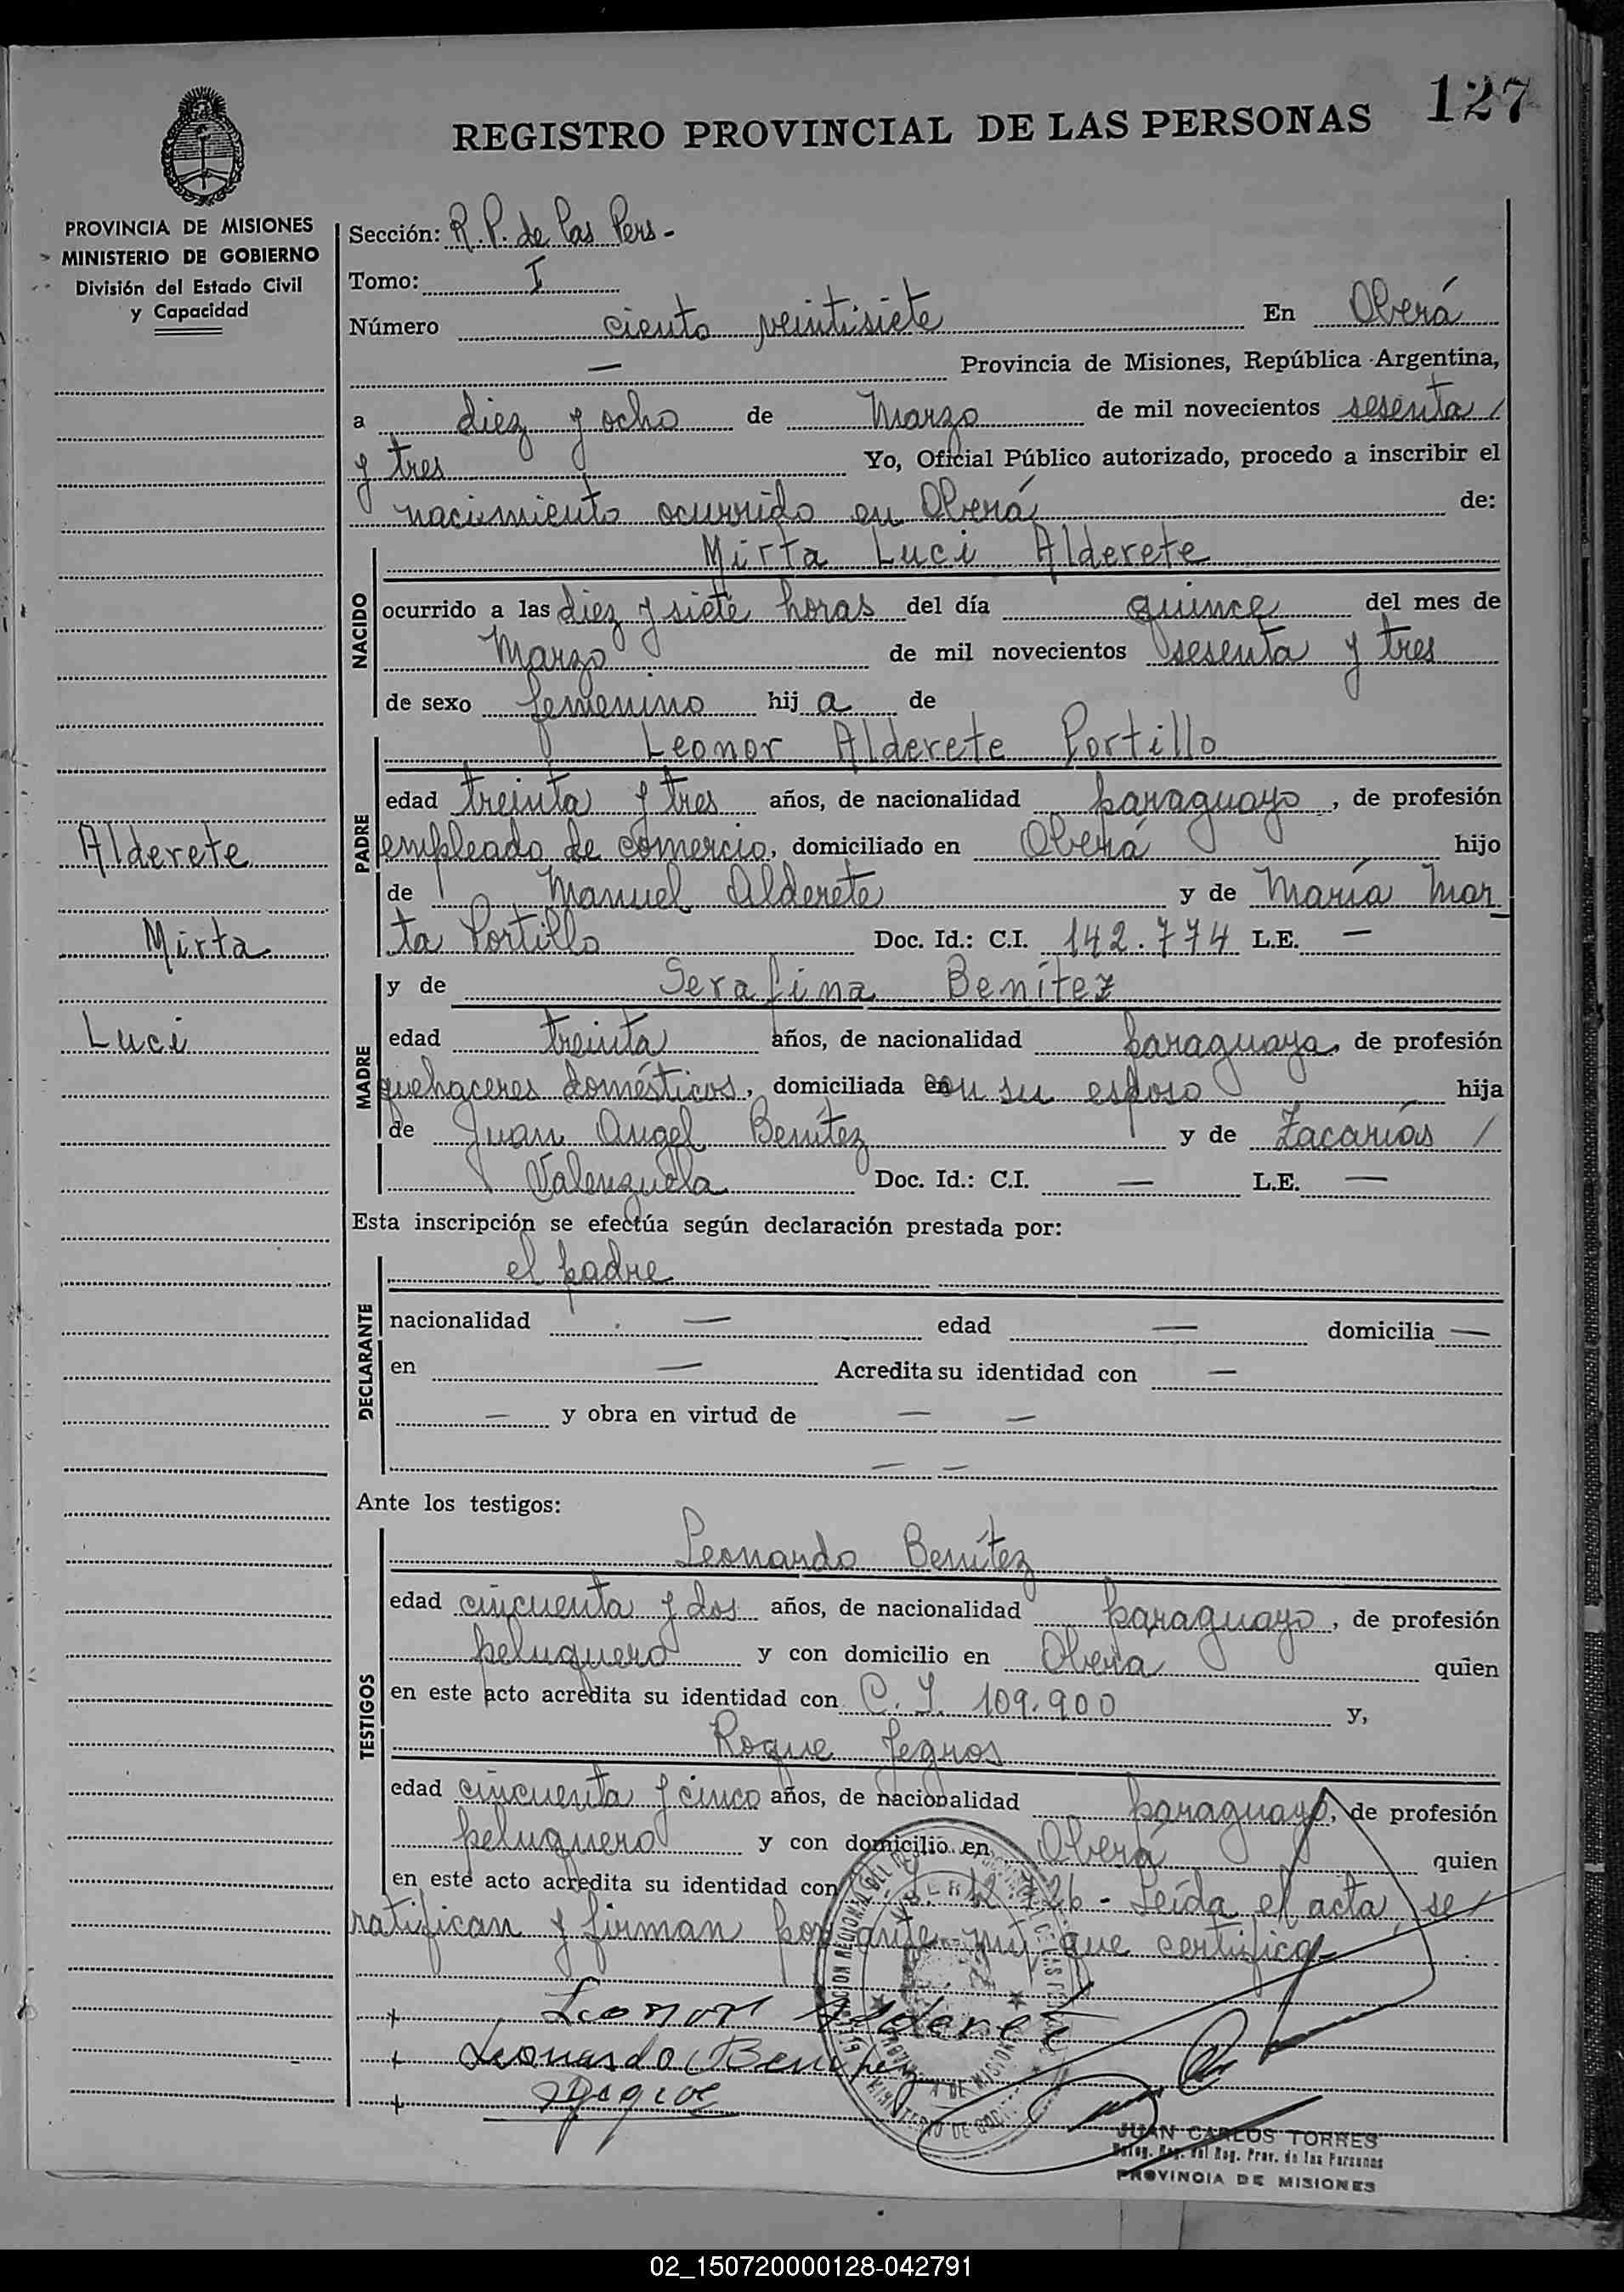 127
REGISTRO PROVINCIAL DE LAS PERSONAS
PROVINCIA DE MISIONES
MINISTERIO DE GOBIERNO
División del Estado Civil
y Capacidad
Alderete
Mirta
Luci
Sección: R. P. de las Pers -
Tomo: I
Número ciento veintisiete En Oberá
— Provincia de Misiones, República Argentina,
a diez y ocho de Marzo de mil novecientos sesenta /
y tres Yo, Oficial Público autorizado, procedo a inscribir el
nacimiento ocurrido en Oberá de:
NACIDO
Mirta Luci Alderete
ocurrido a las diez y siete horas del día quince del mes de
Marzo de mil novecientos sesenta y tres
de sexo femenino hij a de
PADRE
Leonor Alderete Portillo
edad treinta y tres años, de nacionalidad paraguayo, de profesión
empleado de comercio, domiciliado en Oberá hijo
de Manuel Alderete y de María Mar_
ta Portillo Doc. Id.: C.I. 142.774 L.E. —
MADRE
y de Serafina Benítez
edad treinta años, de nacionalidad paraguaya, de profesión
quehaceres domésticos, domiciliada en con su esposo hija
de Juan Angel Benítez y de Zacarías /
Valenzuela Doc. Id.: C.I. — L.E. —
Esta inscripción se efectúa según declaración prestada por:
DECLARANTE
el padre
nacionalidad — edad — domicilia —
en — Acredita su identidad con —
— y obra en virtud de — —
— —
Ante los testigos:
TESTIGOS
Leonardo Benítez
edad cincuenta y dos años, de nacionalidad paraguayo, de profesión
peluquero y con domicilio en Oberá quien
en este acto acredita su identidad con C. I. 109.900 y,
Roque Yegros
edad cincuenta y cinco años, de nacionalidad paraguayo, de profesión
peluquero y con domicilio en Oberá quien
en este acto acredita su identidad con - Leída el acta, se /
ratifican y firman por ante mí, que certifico.
+ Leonor Alderete
+ Leonardo Benitez
+ Yegros
MINISTERIO DE
JUAN CARLOS TORRES
Deleg. Reg. del Reg. Prov. de las Personas
PROVINCIA DE MISIONES
02_150720000128-042791